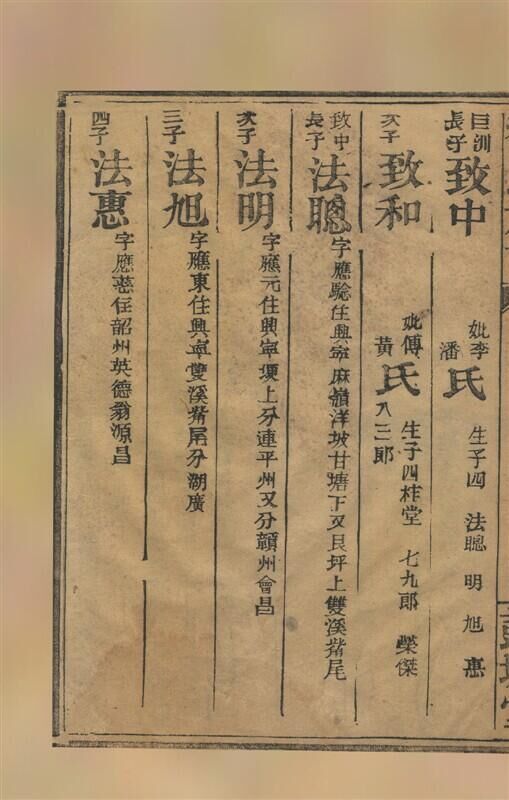 巨渊長子 致中 妣李潘氏 生子四 法聰 明 旭 惠
次子 致和 妣傅黄氏 生子四 柞堂 七九郎 榮傑 八三郎
致中長子 法聰 字應騐住興寧麻嶺洋坡甘塘下又艮坪上雙溪觜尾
次子 法明 字應元住興寧㘰上分連平州又分贑州會昌
三子 法旭 字應東住興寧雙溪觜尾分湖廣
四子 法惠 字應慈住韶州英德翁源昌